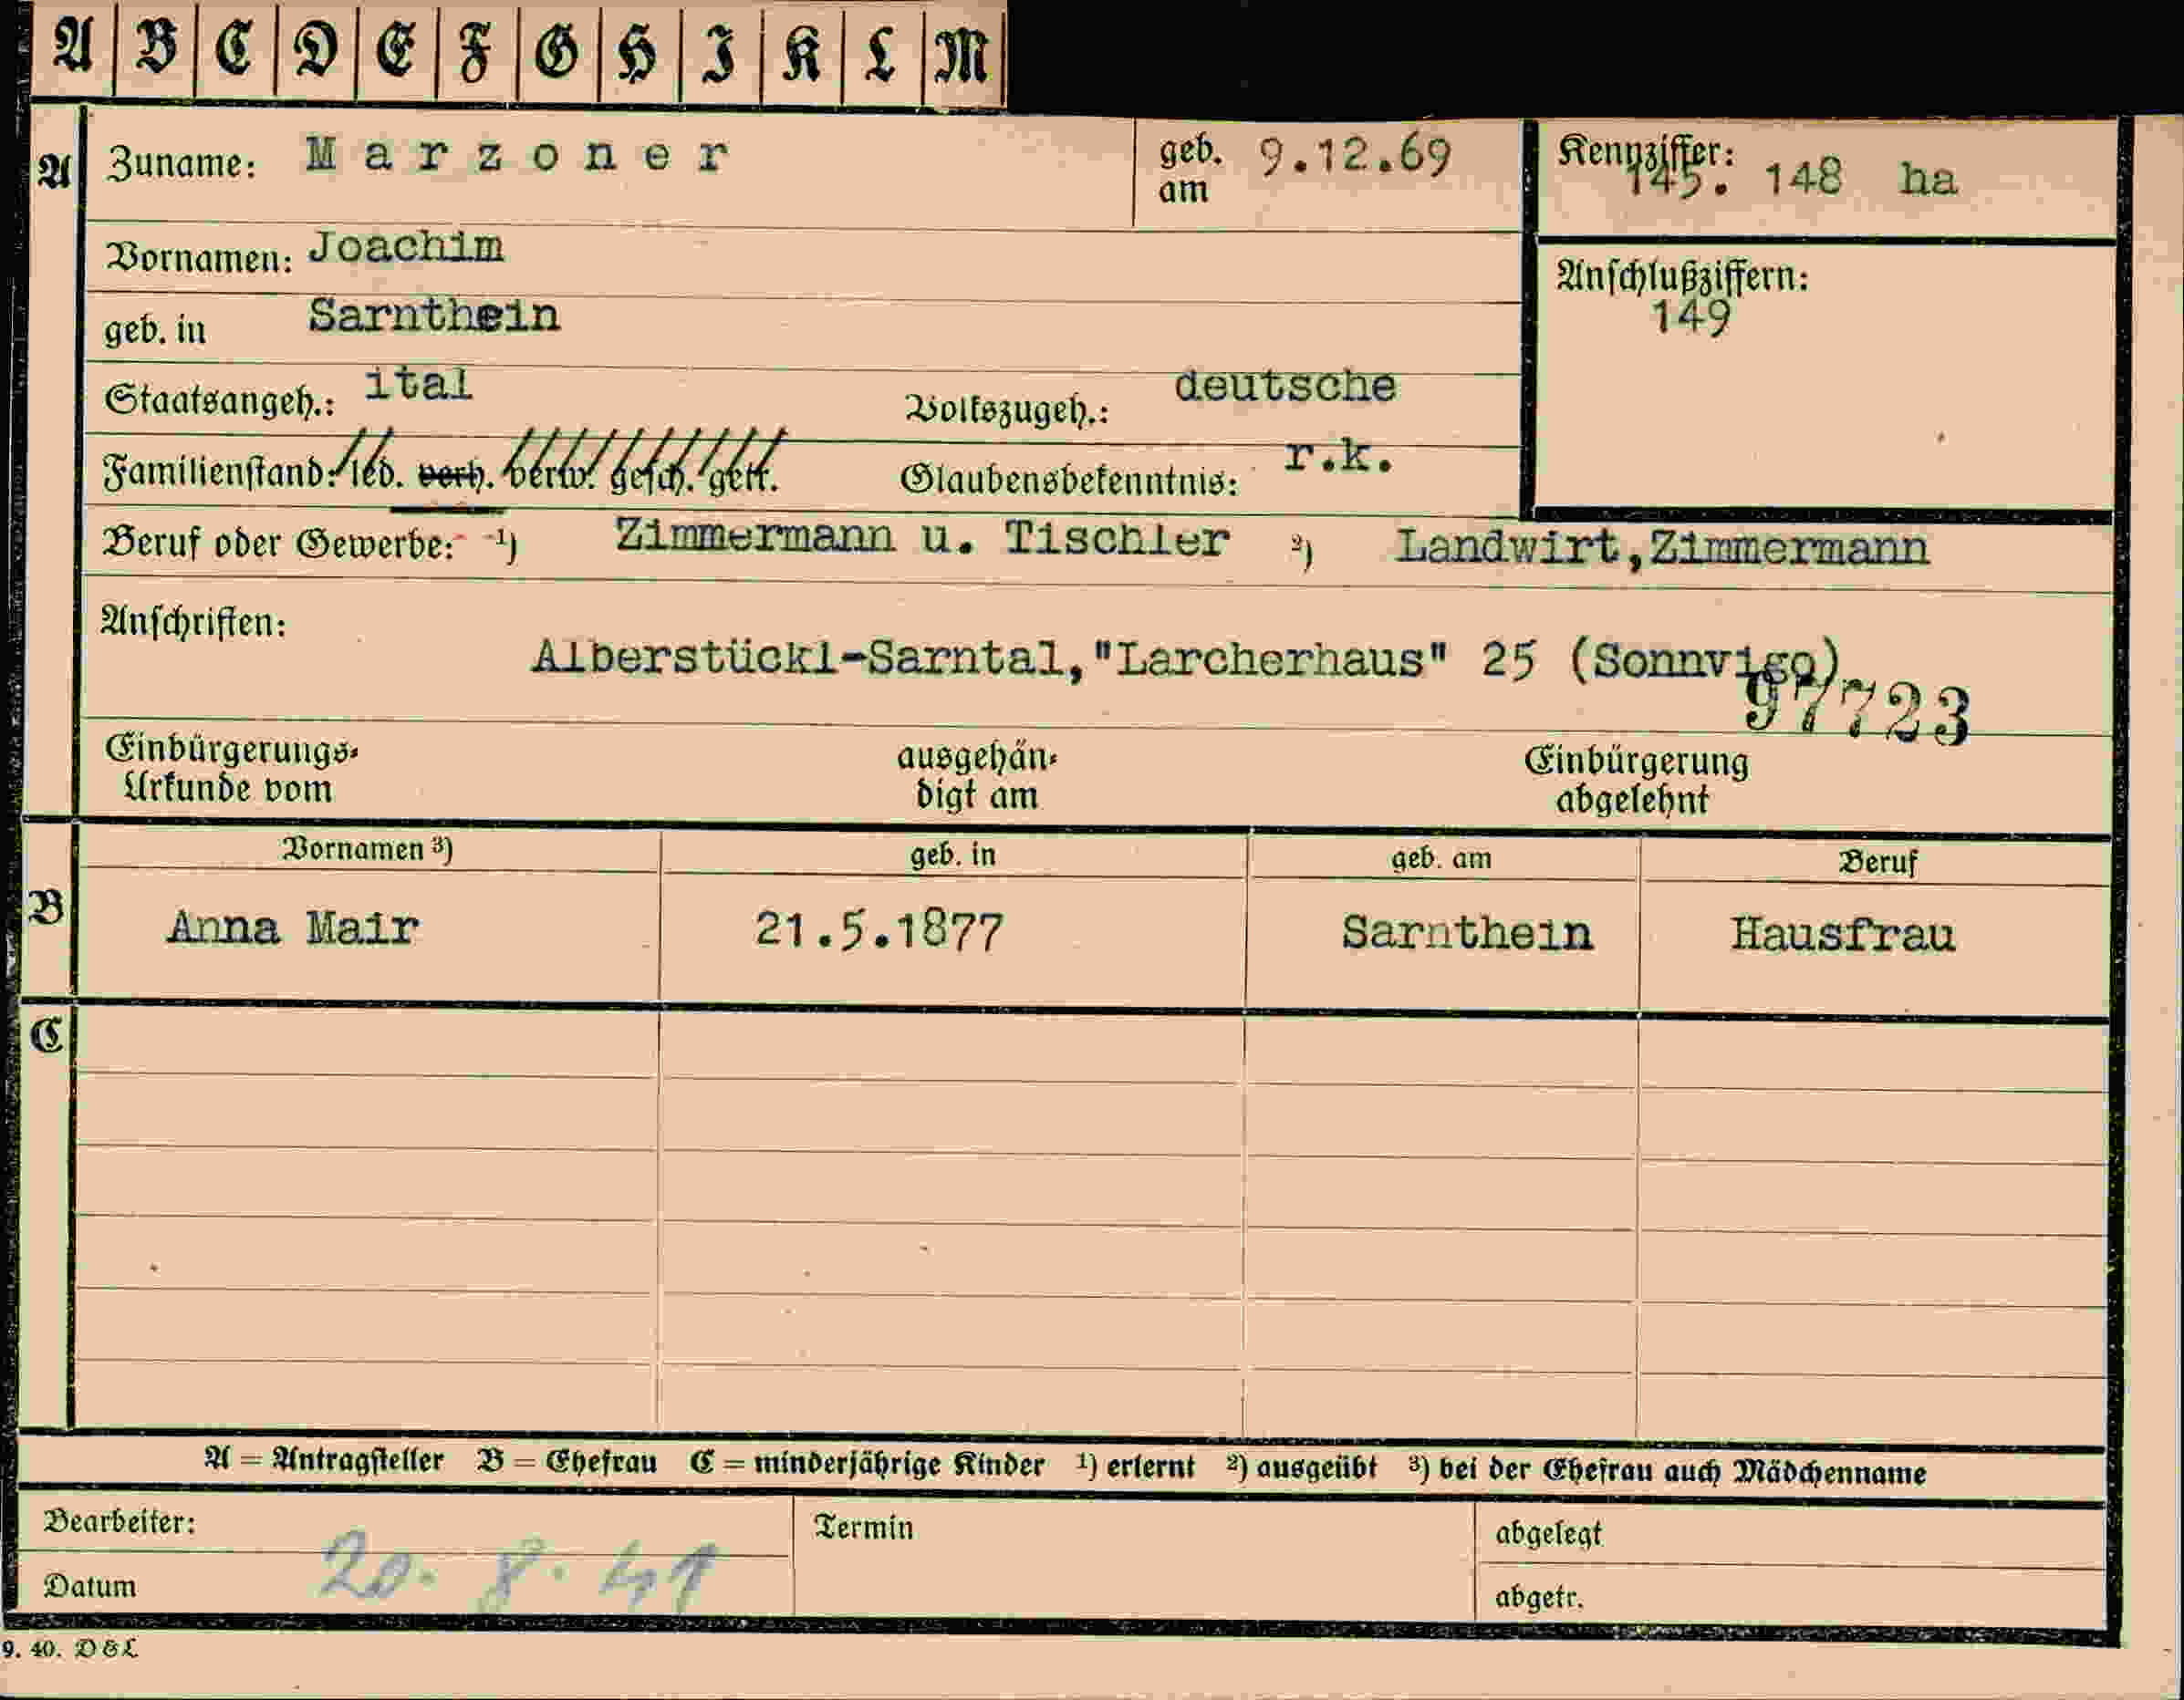 A B C D E F G H I K L M
A Zuname: Marzoner geb. am 9.12.69 Kennziffer: 145. 148 ha
Vornamen: Joachim
Anschlußziffern: 149
geb. in Sarnthein
Staatsangeh.: ital Volkszugeh.: deutsche
Familienstand: led. verh. verw. gesch. getr. Glaubensbekenntnis: r.k.
Beruf oder Gewerbe: ¹) Zimmermann u. Tischler ²) Landwirt,Zimmermann
Anschriften:
Alberstückl-Sarntal,"Larcherhaus" 25 (Sonnvigo)
97723
Einbürgerungs- ausgehän- Einbürgerung
Urkunde vom digt am abgelehnt
Vornamen ³) geb. in geb. am Beruf
B Anna Mair 21.5.1877 Sarnthein Hausfrau
C
A = Antragsteller B = Ehefrau C = minderjährige Kinder ¹) erlernt ²) ausgeübt ³) bei der Ehefrau auch Mädchenname
Bearbeiter: Termin abgelegt
Datum 20. 8. 41 abgetr.
9. 40. D & L